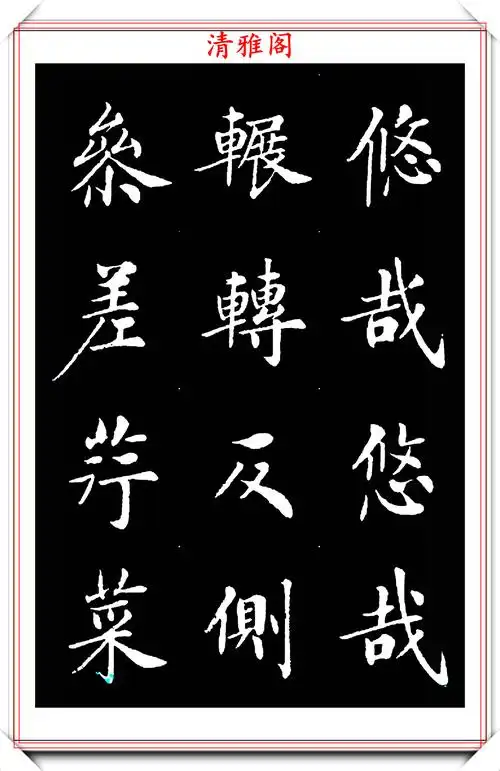 清雅阁
悠哉悠哉
輾轉反側
叅差荇菜